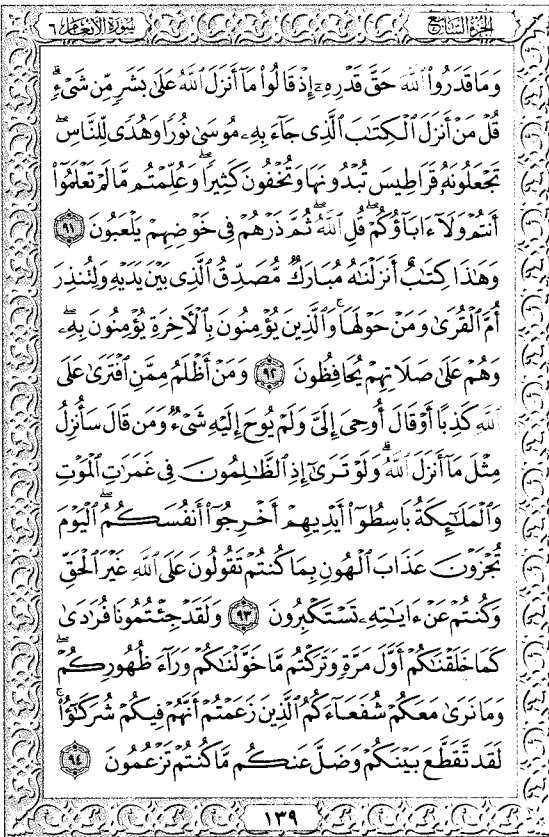 سورة الأنعام ٦
الجزء السابع
وَمَا قَدَرُوا۟ ٱللَّهَ حَقَّ قَدْرِهِۦٓ إِذْ قَالُوا۟ مَآ أَنزَلَ ٱللَّهُ عَلَىٰ بَشَرٍ مِّن شَىْءٍ ۗ
قُلْ مَنْ أَنزَلَ ٱلْكِتَـٰبَ ٱلَّذِى جَآءَ بِهِۦ مُوسَىٰ نُورًا وَهُدًى لِّلنَّاسِ ۖ
تَجْعَلُونَهُۥ قَرَاطِيسَ تُبْدُونَهَا وَتُخْفُونَ كَثِيرًا ۖ وَعُلِّمْتُم مَّا لَمْ تَعْلَمُوٓا۟
أَنتُمْ وَلَآ ءَابَآؤُكُمْ ۖ قُلِ ٱللَّهُ ۖ ثُمَّ ذَرْهُمْ فِى خَوْضِهِمْ يَلْعَبُونَ ٩١
وَهَـٰذَا كِتَـٰبٌ أَنزَلْنَـٰهُ مُبَارَكٌ مُّصَدِّقُ ٱلَّذِى بَيْنَ يَدَيْهِ وَلِتُنذِرَ
أُمَّ ٱلْقُرَىٰ وَمَنْ حَوْلَهَا ۚ وَٱلَّذِينَ يُؤْمِنُونَ بِٱلْـَٔاخِرَةِ يُؤْمِنُونَ بِهِۦ ۖ
وَهُمْ عَلَىٰ صَلَاتِهِمْ يُحَافِظُونَ ٩٢ وَمَنْ أَظْلَمُ مِمَّنِ ٱفْتَرَىٰ عَلَى
ٱللَّهِ كَذِبًا أَوْ قَالَ أُوحِىَ إِلَىَّ وَلَمْ يُوحَ إِلَيْهِ شَىْءٌ وَمَن قَالَ سَأُنزِلُ
مِثْلَ مَآ أَنزَلَ ٱللَّهُ ۗ وَلَوْ تَرَىٰٓ إِذِ ٱلظَّـٰلِمُونَ فِى غَمَرَٰتِ ٱلْمَوْتِ
وَٱلْمَلَـٰٓئِكَةُ بَاسِطُوٓا۟ أَيْدِيهِمْ أَخْرِجُوٓا۟ أَنفُسَكُمُ ۖ ٱلْيَوْمَ
تُجْزَوْنَ عَذَابَ ٱلْهُونِ بِمَا كُنتُمْ تَقُولُونَ عَلَى ٱللَّهِ غَيْرَ ٱلْحَقِّ
وَكُنتُمْ عَنْ ءَايَـٰتِهِۦ تَسْتَكْبِرُونَ ٩٣ وَلَقَدْ جِئْتُمُونَا فُرَٰدَىٰ
كَمَا خَلَقْنَـٰكُمْ أَوَّلَ مَرَّةٍ وَتَرَكْتُم مَّا خَوَّلْنَـٰكُمْ وَرَآءَ ظُهُورِكُمْ ۖ
وَمَا نَرَىٰ مَعَكُمْ شُفَعَآءَكُمُ ٱلَّذِينَ زَعَمْتُمْ أَنَّهُمْ فِيكُمْ شُرَكَـٰٓؤُا۟ ۚ
لَقَد تَّقَطَّعَ بَيْنَكُمْ وَضَلَّ عَنكُم مَّا كُنتُمْ تَزْعُمُونَ ٩٤
١٣٩